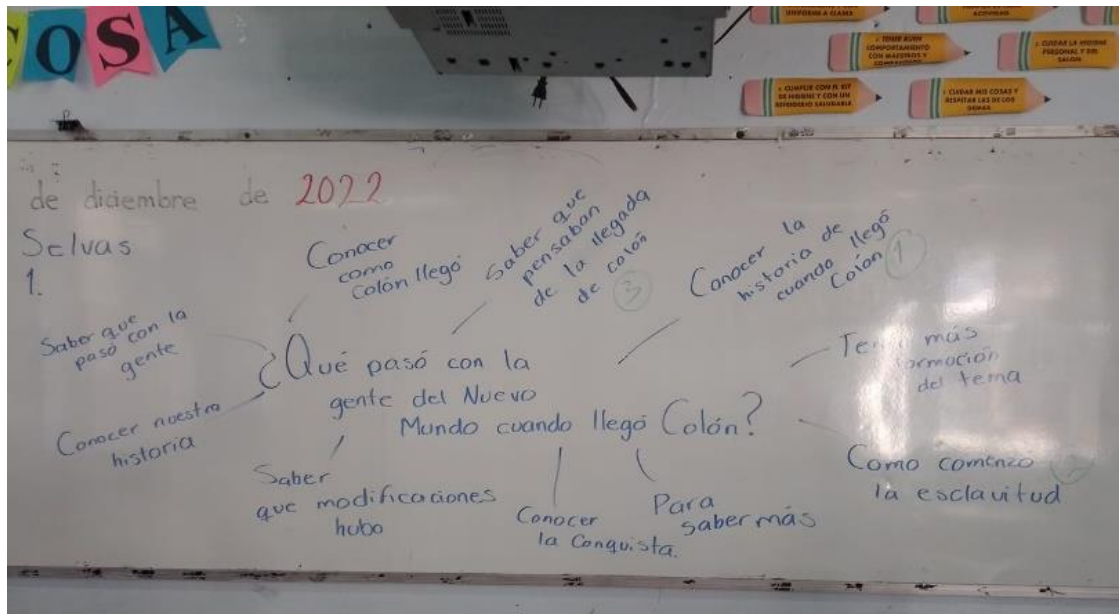 OSA
UNIFORME A CLASES
ACTIVIDAD
2. TENER BUEN
COMPORTAMIENTO
CON MAESTROS Y
COMPAÑEROS
2. CUIDAR LA HIGIENE
PERSONAL Y DEL
SALÓN
1. CUMPLIR CON EL KIT
DE HIGIENE Y CON UN
REFRIGERIO SALUDABLE
1. CUIDAR MIS COSAS Y
RESPETAR LAS DE LOS
DEMÁS
de diciembre de 2022
Selvas
1.
Conocer
como
Colón llegó
Saber que
pensaban
de la llegada
de colón 3
Conocer la
historia de
cuando llegó
Colón 1
Saber que
pasó con la
gente
¿Qué pasó con la
gente del Nuevo
Mundo cuando llegó Colón?
más
del tema
Conocer nuestra
historia
Saber
que modificaciones
hubo
Conocer
la Conquista.
Para
saber más
Como comenzó
la esclavitud